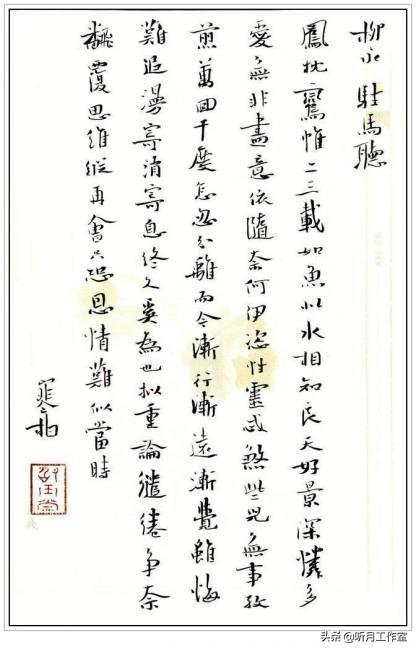 柳永 駐馬聽
鳳枕鸞帷二三載如魚似水相知良天好景深憐多
愛無非盡意依隨奈何伊恣性靈忒煞些兒無事孜
煎萬回千度怎忍分離而今漸行漸遠漸覺雖悔
難追漫寄消寄息終久奚為也擬重論繾綣爭奈
翻覆思維縱再會只恐恩情難似當時
寒柏
头条 @听月工作室